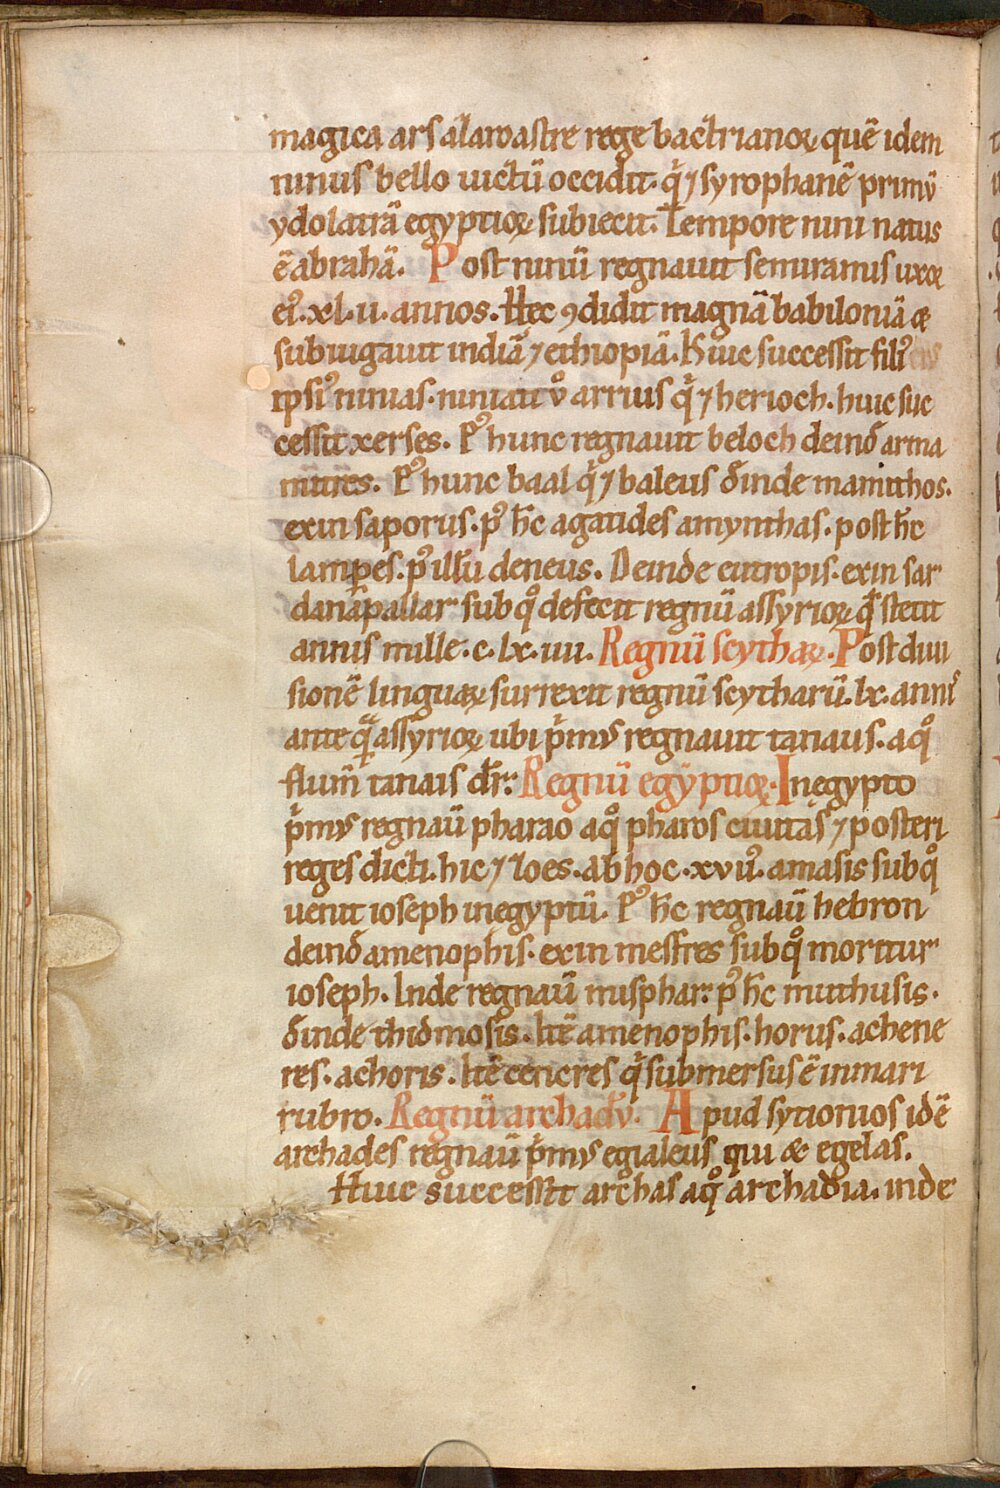 magica ars a laroastre rege bactrianoꝝ quē idem
ninus bello uictū occidit. q̇ ⁊ syrophanē primū
ydolatrā egyptioꝝ subiecit. Tempore nini natus
ē abrahā. Post ninū regnauit semiramis uxoꝛ
eiꝰ. xl. ii. annos. Hec ꝯdidit magnā babiloniā &
subiugauit indiā ⁊ ethiopiā. Huic successit filiꝰ
ipsiꝰ ninias. niniati v̊ arrius q̇ ⁊ herioch. huic suc
cessit xerses. Pꝰ hunc regnauit beloch deinđ arma
mitres. Pꝰ hunc baal q̇ ⁊ baleus đinde manithos.
exin saporus. pꝰ h̄c agatides amynthas. post h̄c
lampes. pꝰ illū deneus. Deinde eutropis. exin sar
danapallar sub qͦ defecit regnū assyrioꝝ q̇ stetit
annis mille. c. lx. iiii. Regnū scythaꝝ. Post diui
sionē linguaꝝ surrexit regnū scytharū. lx. annis
ante qͣ assyrioꝝ ubi pͥmꝰ regnauit tanaus. a qͦ
flum̄ tanais dr̄: Regnū egyptioꝝ. In egypto
pͥmꝰ regnaū pharao a qͦ pharos ciuitas ⁊ posteri
reges dicti. hic ⁊ zoes. ab hoc. xvii. amasis sub qͦ
uenit ioseph in egyptū. Pꝰ h̄c regnaū hebron
deinđ amenophis. exin mesfres sub qͦ moritur
ioseph. Inde regnaū misphar: pꝰ h̄c muthusis.
đinde thidmosis. Itē amenophis. horus. achene
res. achoris. Itē cencres q̇ submersus ē in mari
rubro. Regnū archadū. Apud sytionios idē
archades regnaū pͥmꝰ egialeus qui & egelas.
Huic successit archas a qͦ archadia. inde